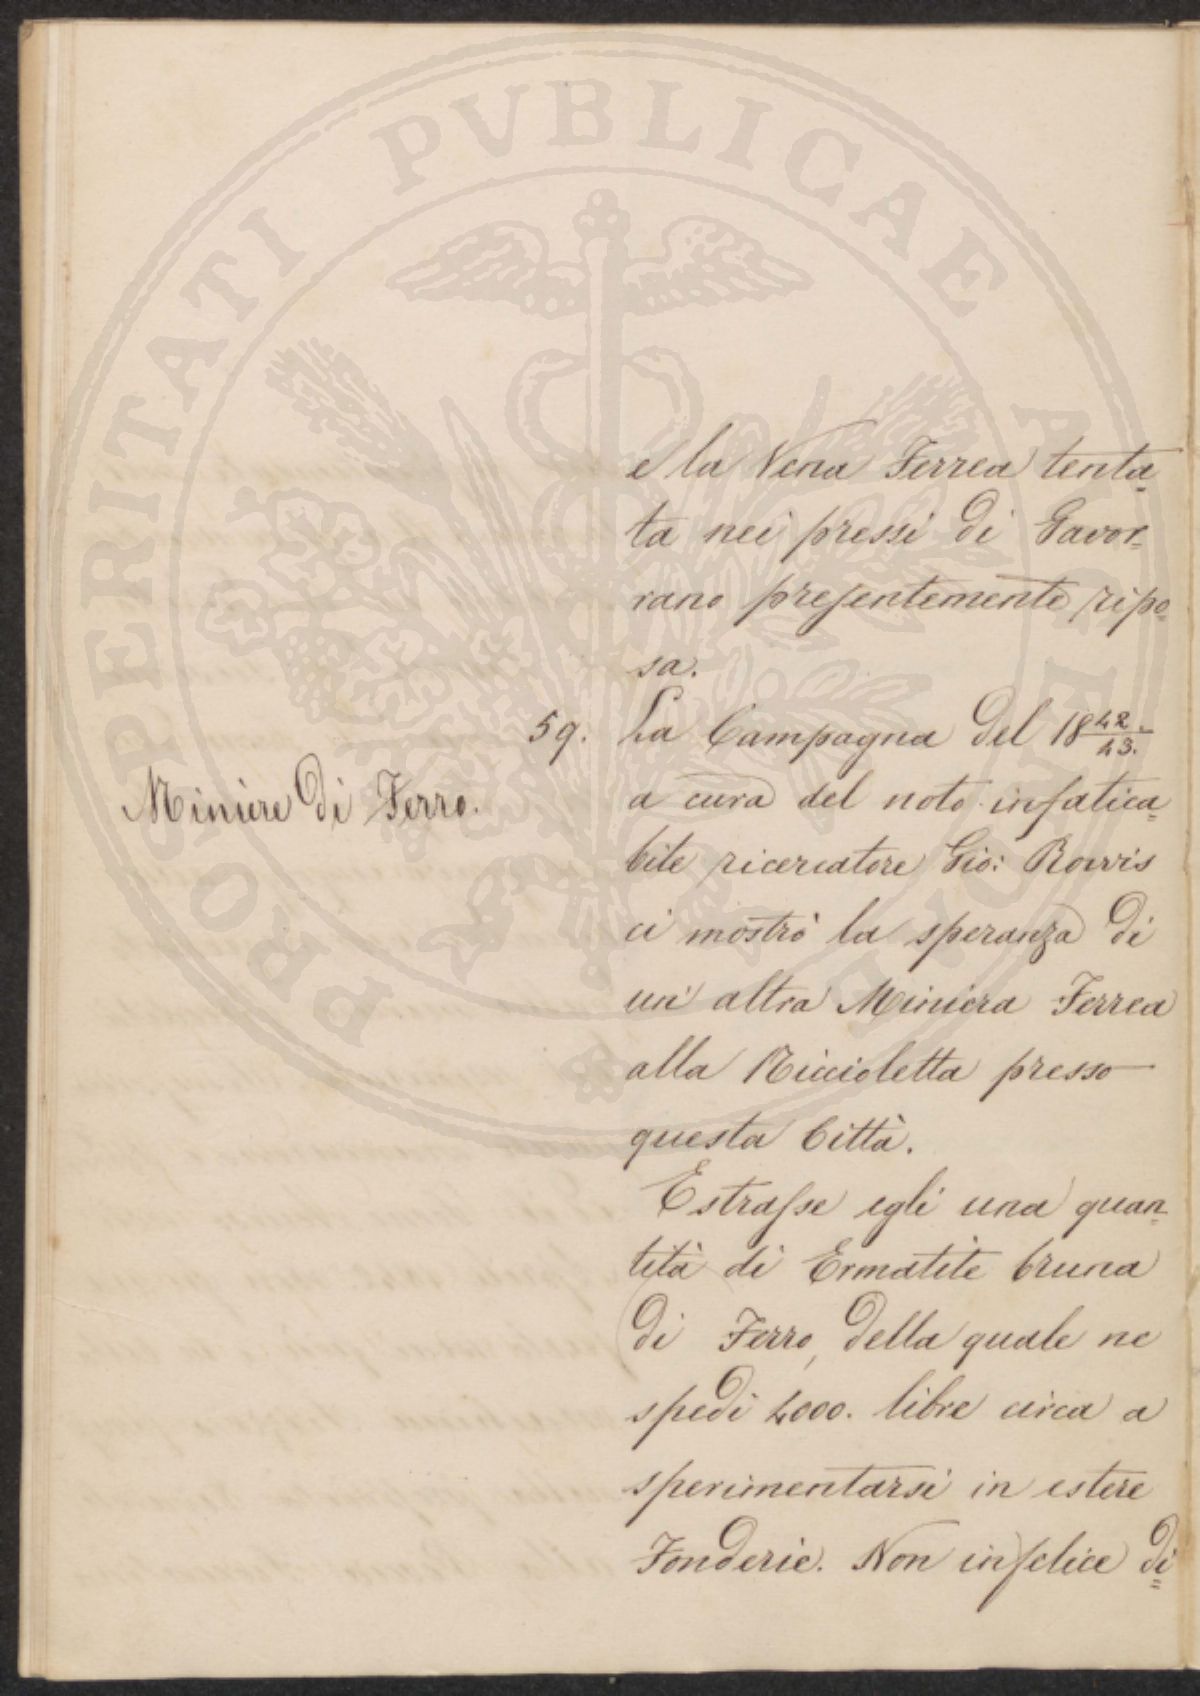 e la Vena Ferrea tenta=
ta nei pressi di Gavor=
rano presentemente ripo=
sa.
59. La Campagna del 18 42/43.
Miniere di Ferro.
a cura del noto infatica=
bile ricercatore Gio: Rovis
ci mostrò la speranza di
un' altra Miniera Ferrea
alla Niccioletta presso
questa Città.
Estrasse egli una quan=
tità di Ermatite bruna
di Ferro, della quale ne
spedì 4000. libre circa a
sperimentarsi in estere
Fonderie. Non infelice di=
PROSPERITATI PVBLICAE